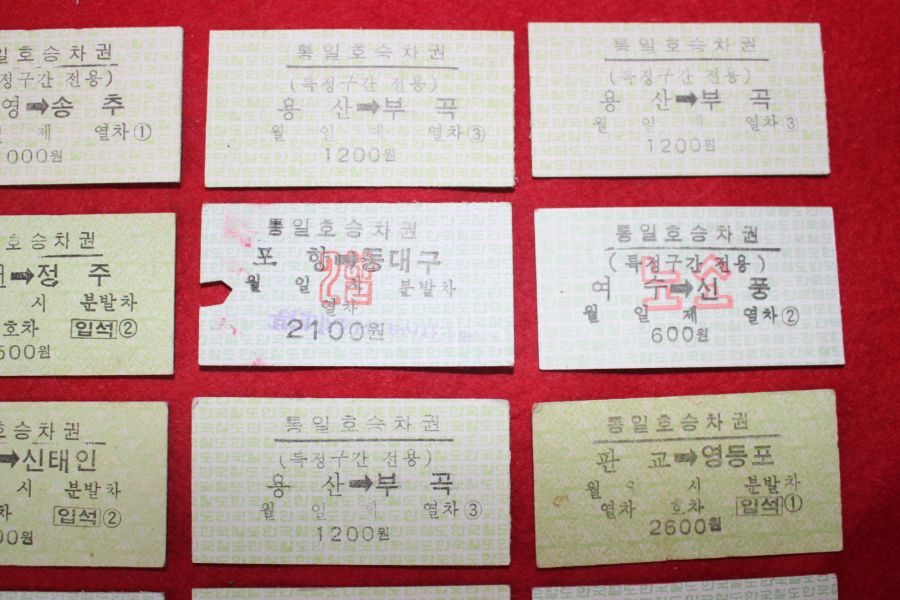 일호승차권
정구간 전용)
영➡송 추
제 열차①
000원
통일호승차권
(특정구간 전용)
용 산➡부 곡
월 일 제 열차③
1200원
통일호승차권
(특정구간 전용)
용 산➡부 곡
월 일 제 열차③
1200원
호승차권
➡정 주
시 분발차
호차 입석②
500원
통일호승차권
포 항➡동대구
월 일 시 분발차
열차
2100원
통일호승차권
(특정구간 전용)
여 수➡신 풍
월 일 제 열차②
600원
호승차권
➡신태인
시 분발차
차 입석②
00원
통일호승차권
(특정구간 전용)
용 산➡부 곡
월 일 제 열차③
1200원
통일호승차권
판 교➡영등포
월 일 시 분발차
열차 호차 입석①
2600원